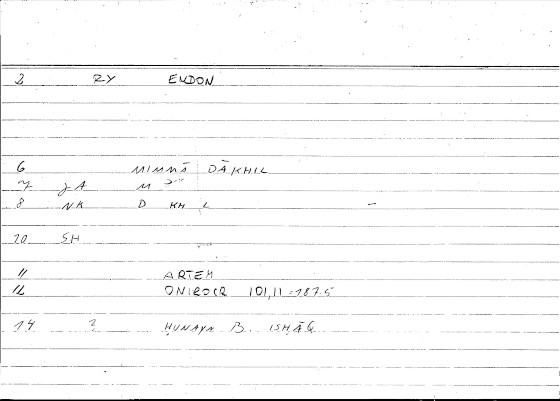 2 RY ENDON
6 MIMMĀ DĀKHIL
7 JA M
8 NK D KH L
10 SH
11 ARTEM
12 ONIROCR 101,11-187.5
14 ? ḤUNAYN B. ISḤĀQ